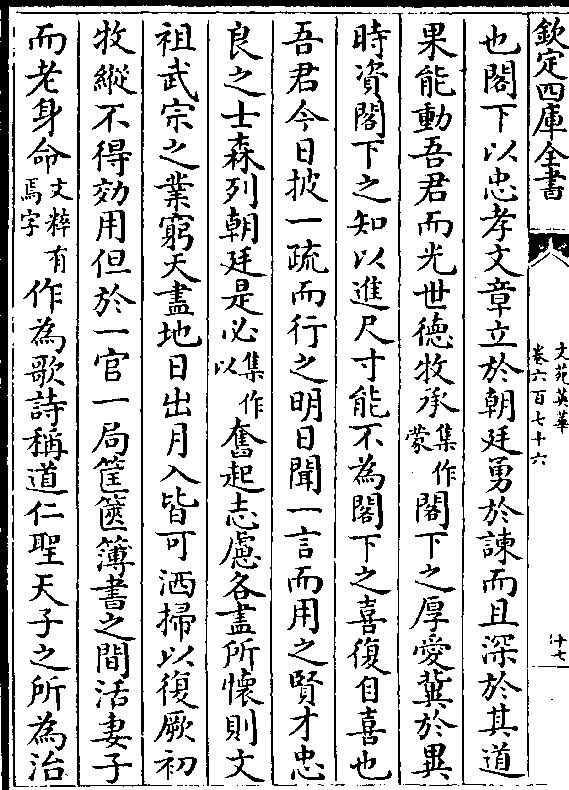 欽定四庫全書
文苑英華
卷六百七十六
十七
也閣下以忠孝文章立於朝廷勇於諫而且深於其道
果能動吾君而光世德牧承集作蒙閣下之厚愛冀於異
時資閣下之知以進尺寸能不為閣下之喜復自喜也
吾君今日披一疏而行之明日聞一言而用之賢才忠
良之士森列朝廷是必集作以奮起志慮各盡所懷則文
祖武宗之業窮天盡地日出月入皆可洒掃以復厥初
牧縱不得効用但於一官一局筐篋簿書之間活妻子
而老身命文粹有焉字作為歌詩稱道仁聖天子之所為治